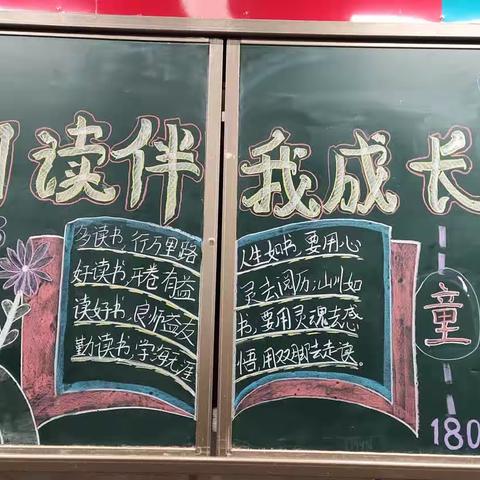 读伴我成长
多读书,行万里路
好读书,开卷有益
读好书,良师益友
勤读书,学海无涯
人生如书,要用心
灵去阅历;山川如
书,要用灵魂去感
悟,用双脚去走读。
童
180